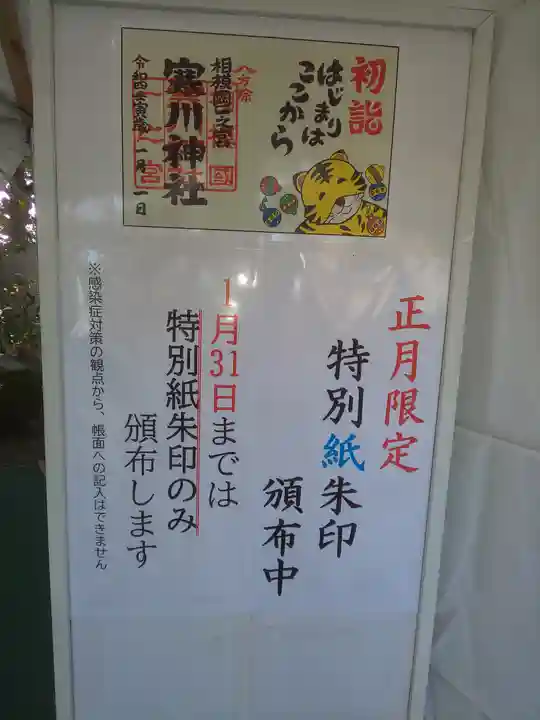 初詣
はじまりは
ここから
八方除
相模國一之宮
寒川神社
令和四壬寅歳一月一日
正月限定
特別紙朱印
頒布中
1月31日までは
特別紙朱印のみ
頒布します
※感染症対策の観点から、帳面への記入はできません